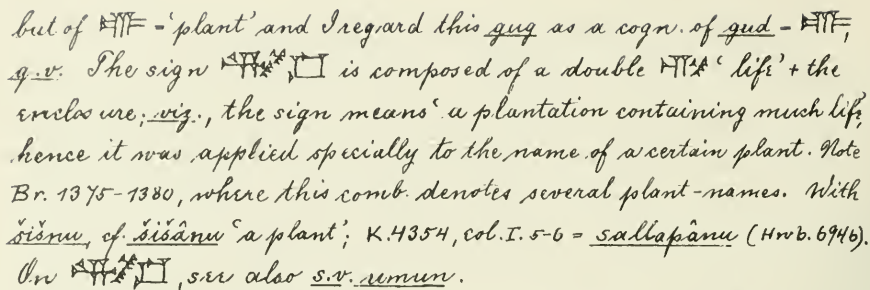 but of - ‘plant’ and I regard this gug as a cogn. of gud - ,
q.v. The sign is composed of a double ‘life’ + the
enclosure; viz., the sign means ‘a plantation containing much life,
hence it was applied specially to the name of a certain plant. Note
Br. 1375-1380, where this comb. denotes several plant-names. With
šišnu, cf. šišânu ‘a plant’; K.4354, col. I. 5-6 = sallapânu (Hwb. 694b).
On , see also s.v. umun.